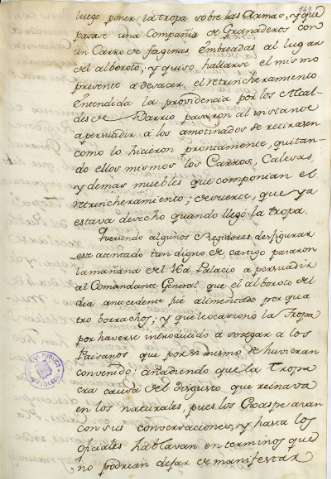 luego poner la tropa sobre las Armas, y que
pasase una Compañia de Granaderos con
un Carro de faginas embreadas al lugar
del alboroto, y quiso hallarse el mismo
presente a desacer el retrincheramiento
Entendida la providencia por los Alcal-
des de Barrio pasaron al instante
a persuadir a los amotinados se retirasen
como lo hicieron prontamente, quitan-
do ellos mismos los Carros, Calesas,
y demas muebles que componian el
retrincheramiento; de suerte, que ya
estava desecho quando llegó la tropa.
Queriendo algunos Regidores desfigurar
este atentado tan digno de castigo pasaron
la mañana del 16 a Palacio a persuadir
al Comandante General que el alboroto del
dia antecedente fue alimentado por qua
tro borrachos, y que lo ocasionó la Tropa
por haverse introducido a vengar a los
Paisanos que por si mismo se huvieran
convenido; añadiendo que la Tropa
era causa del disgusto que reinava
en los naturales, pues los
con sus conversaciones, y hasta los
oficiales hablavan en terminos que
no podrian dejar de manifestar